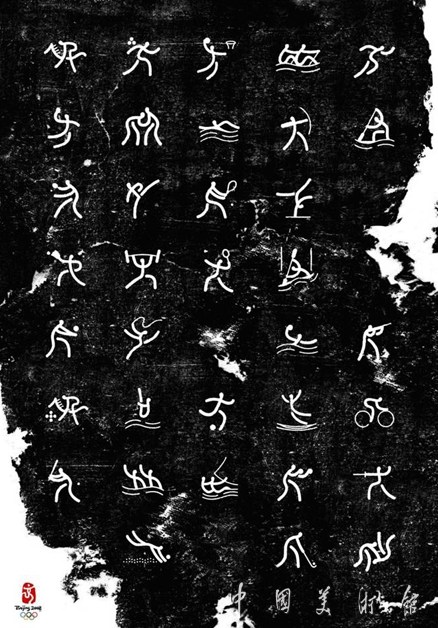 Beijing 2008
中国美术馆